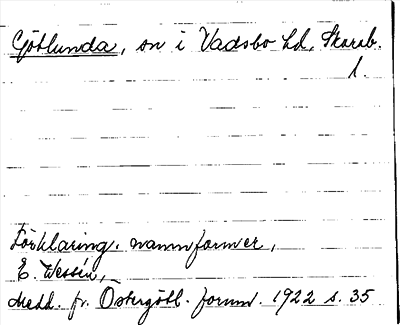 Götlunda, sn i Vadsbo hd, Skarab.
l.
Förklaring. namnformer,
E. Wessén,
Medd. fr. Östergötl. fornm. 1922 s. 35